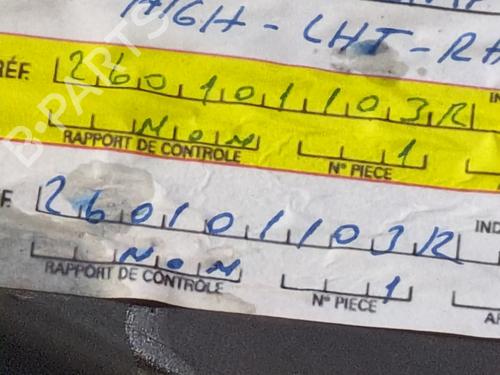 HIGH - LHT - RH
RÉF. 260101103R IN
NON 1
RAPPORT DE CONTRÔLE N° PIECE
F. 260101103R IND
NON 1
RAPPORT DE CONTRÔLE N° PIECE AF
B-PARTS